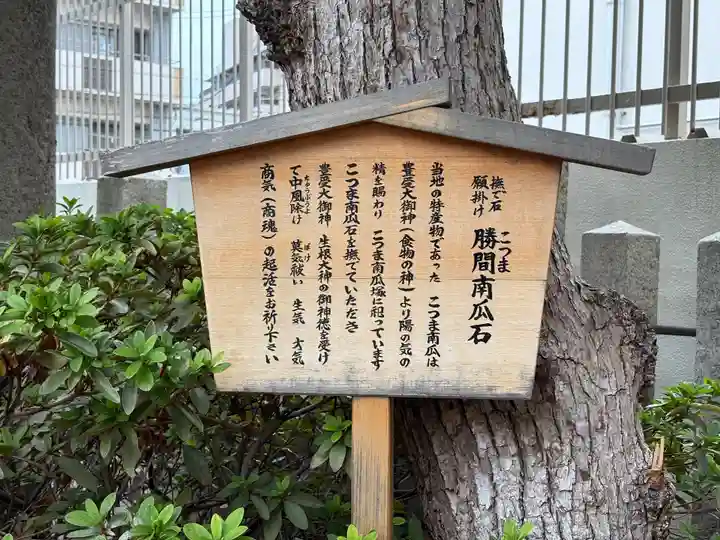 撫で石
願掛け
こつま
勝間南瓜石
当地の特産物であった こつま南瓜は
豊受大御神(食物の神)より陽の気の
精を賜わり こつま南瓜塚に祀っています
こつま南瓜石を撫でていただき
豊受大御神 生根大神の御神徳を受け
ちゅうぶうよ
て中風除け
ぼけ
莫気祓い 生気 才気
商気(商魂)の起活をお祈り下さい